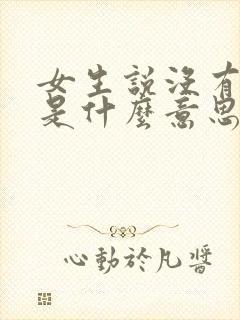 女生說沒有
是什麼意思
心動於凡醬